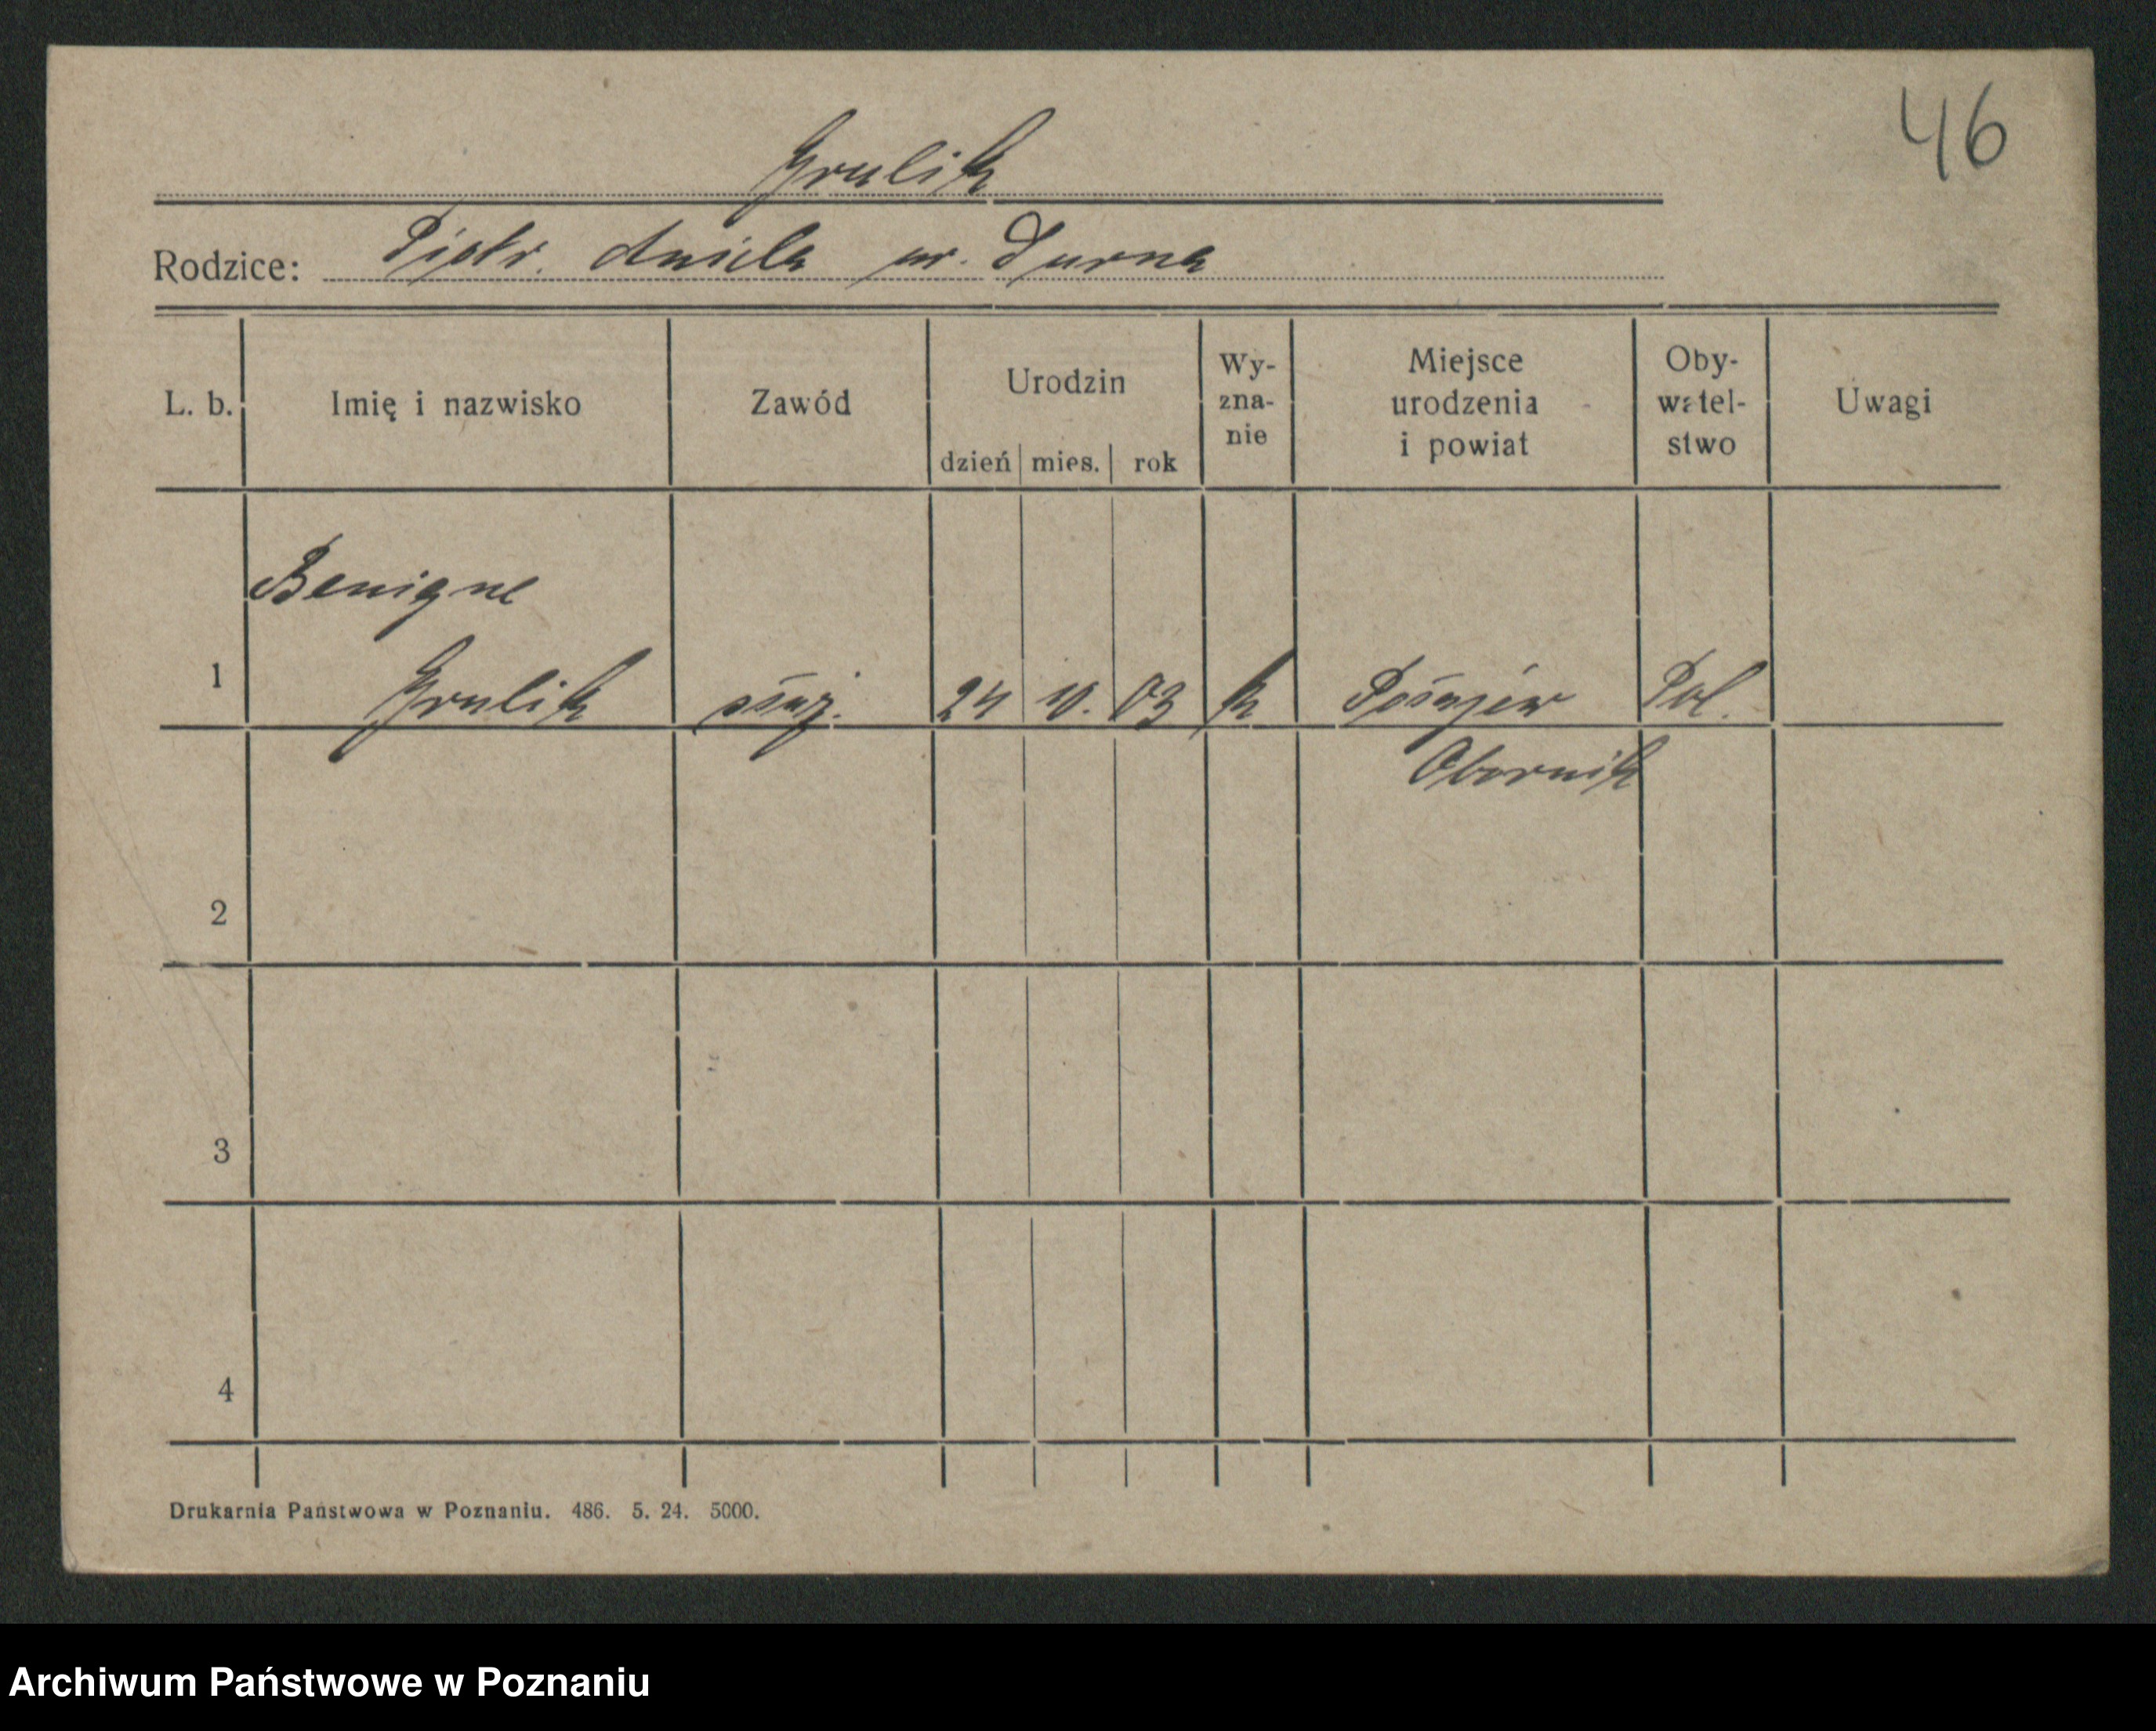 46
Grulik
Rodzice: Piotr. Aniela ur. Durna
L. b. Imię i nazwisko Zawód Urodzin dzień mies. rok Wy-zna-nie Miejsce urodzenia i powiat Oby-watel-stwo Uwagi
Benigne
1 Grulik służ. 24 10. 03 k Połajew Pol.
Obornik
2
3
4
Drukarnia Państwowa w Poznaniu. 486. 5. 24. 5000.
Archiwum Państwowe w Poznaniu